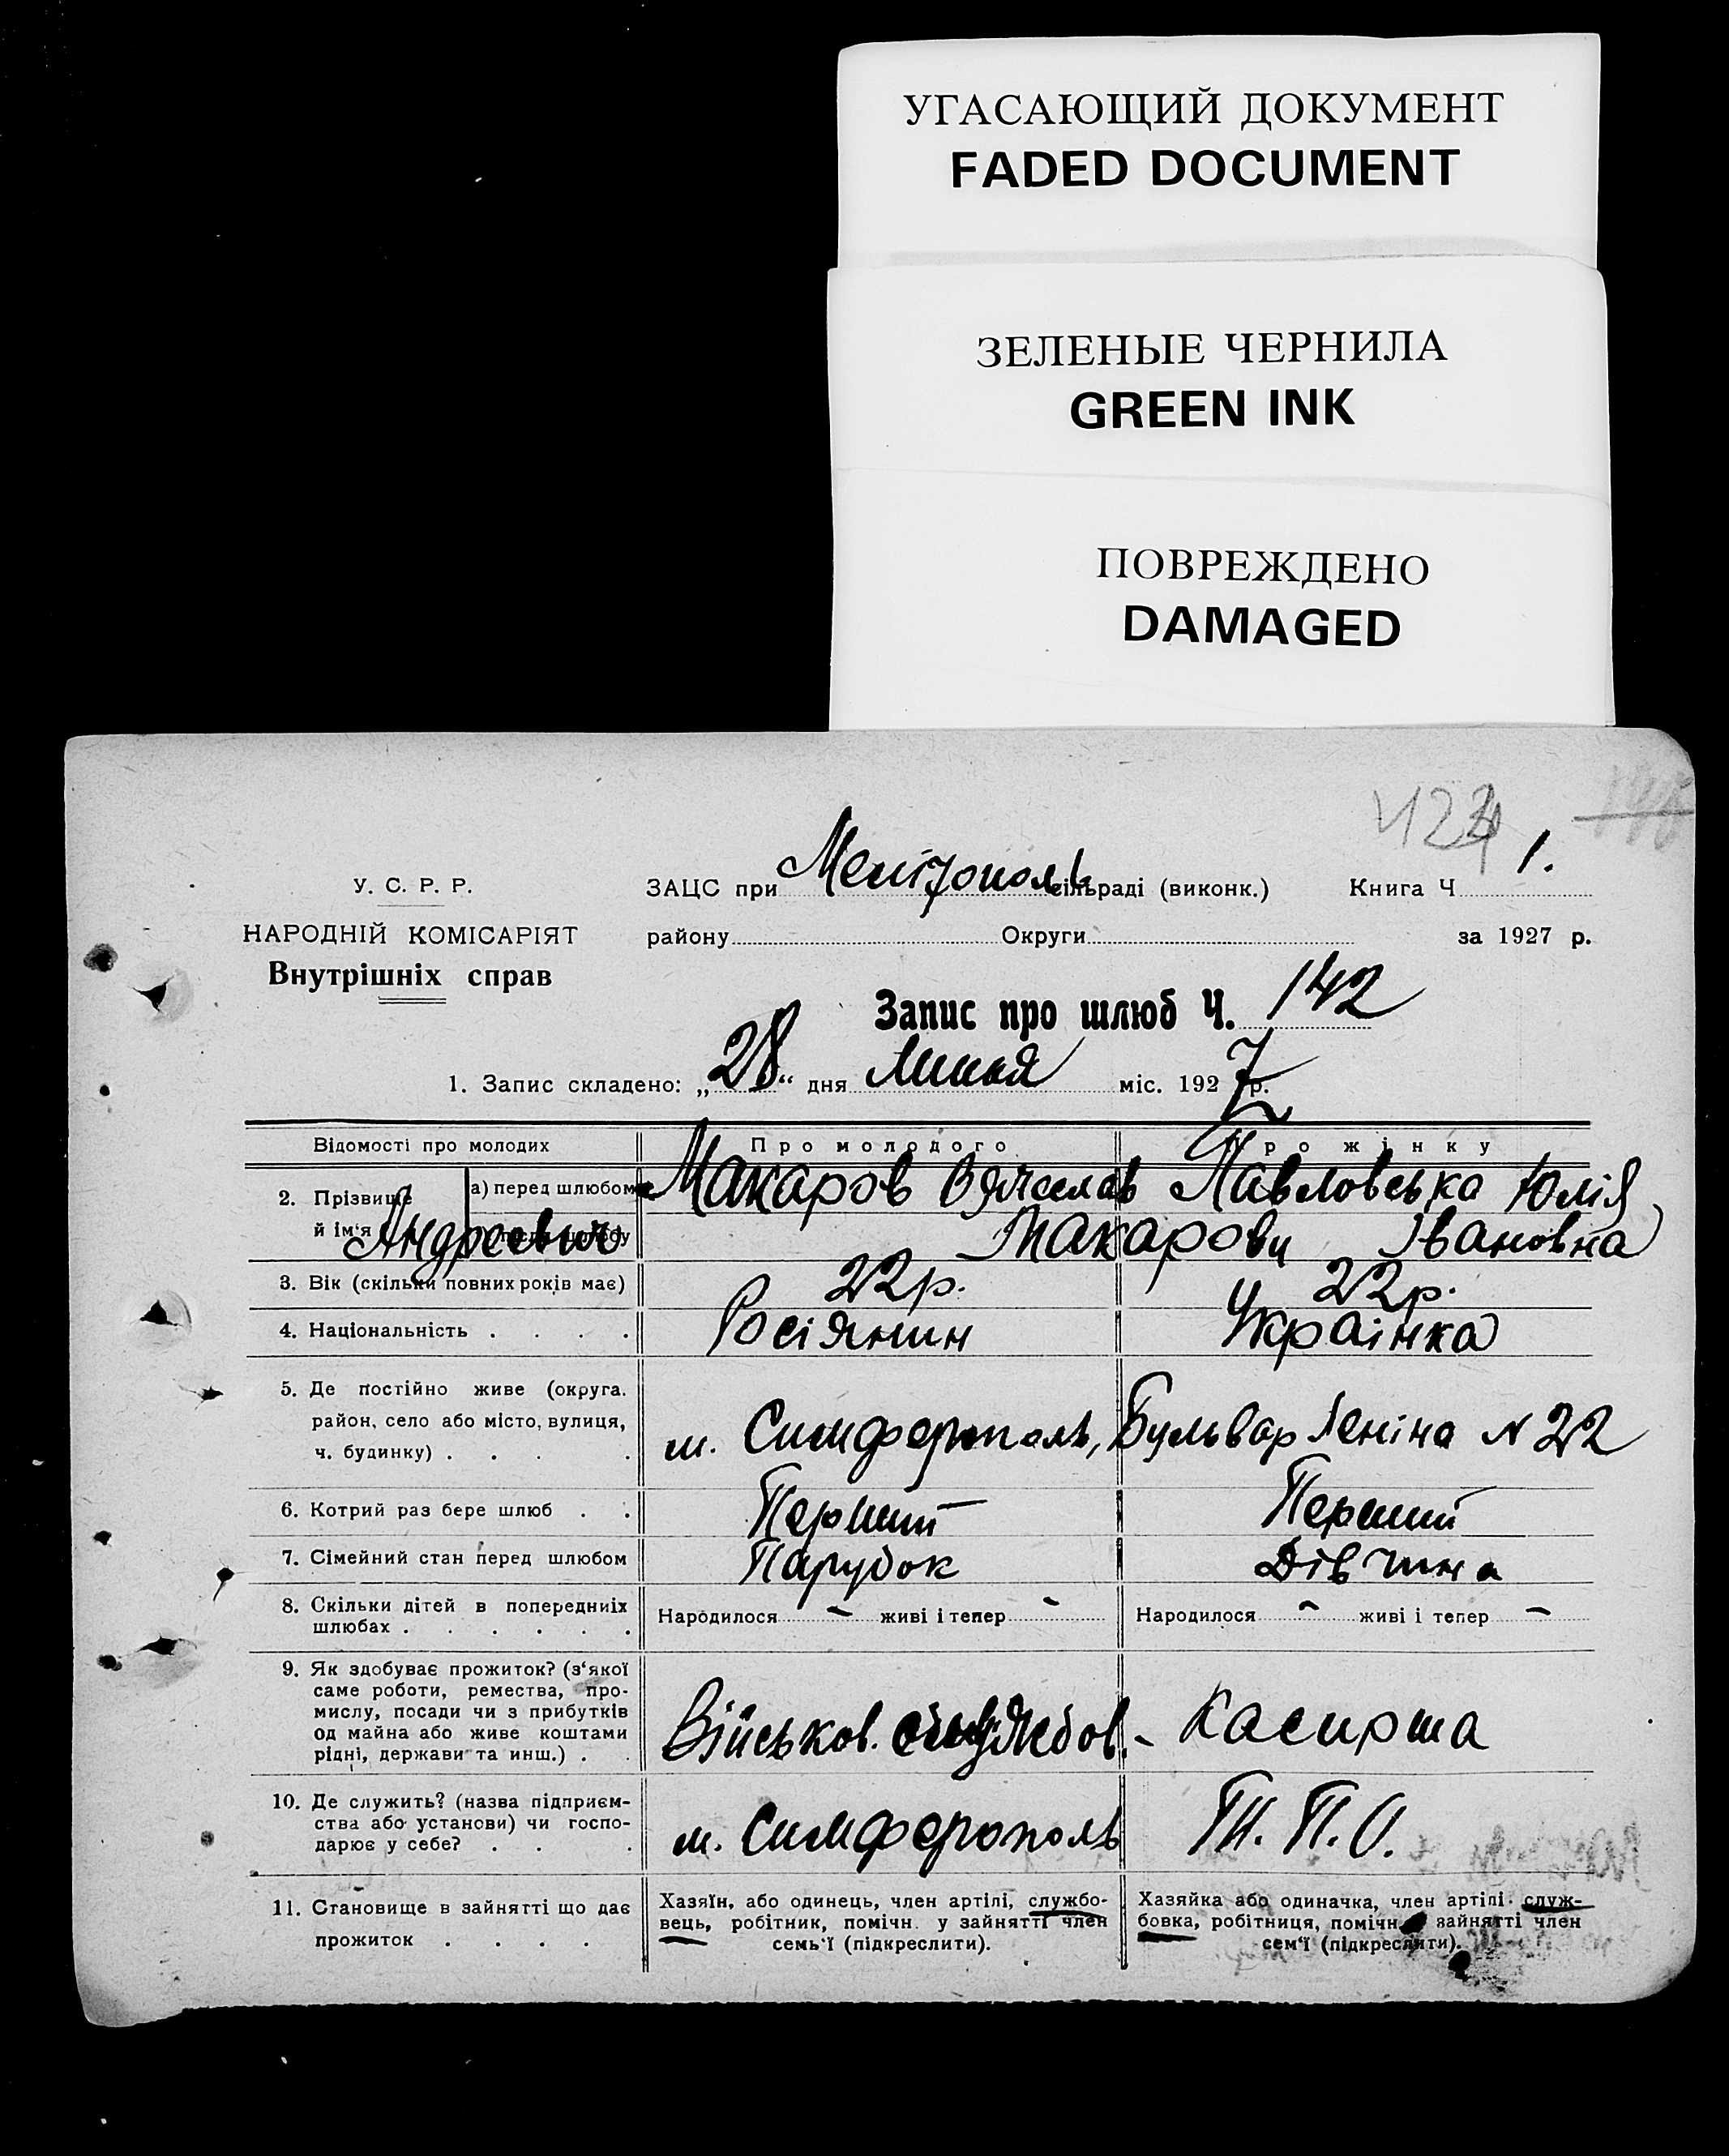 УГАСАЮЩИЙ ДОКУМЕНТ
FADED DOCUMENT
ЗЕЛЕНЫЕ ЧЕРНИЛА
GREEN INK
ПОВРЕЖДЕНО
DAMAGED
1.
У. С. Р. Р.
ЗАЦС при Мелітополь сільраді (виконк.) Книга Ч
НАРОДНІЙ КОМІСАРІЯТ
району Округи за 1927 р.
Внутрішніх справ
Запис про шлюб Ч. 142
1. Запис складено: „28“ дня Липня міс. 1927 р.
Відомості про молодих Про молодого Про жінку
2. Прізвище й ім'я а) перед шлюбом Макаров Вячеслав Павловська Юлія
Андреевич шлюбу Макарови Івановна
3. Вік (скільки повних років має) 22р. 22р.
4. Національність . . . . Росіянин Украінка
5. Де постійно живе (округа.
район, село або місто, вулиця,
ч. будинку) . . . . м. Симферополь, Бульвар Леніна N 22
6. Котрий раз бере шлюб . . Перший Перший
7. Сімейний стан перед шлюбом Парубок Дівчина
8. Скільки дітей в попередниїх
шлюбах . . . . . . Народилося - живі і тепер - Народилося - живі і тепер -
9. Як здобуває прожиток? (з‘якої
саме роботи, ремества, про-
мислу, посади чи з прибутків
од майна або живе коштами
рідні, держави та инш.) . . Військов. службов. - касирша
10. Де служить? (назва підприєм-
ства або установи) чи госпо-
дарює у себе? . . . м. Симферополь Т.П.О.
11. Становище в зайнятті що дає
прожиток . . . .
Хазяїн, або одинець, член артілі, службо-
вець, робітник, помічн. у зайнятті член
семь'ї (підкреслити).
Хазяйка або одиначка, член артілі. служ-
бовка, робітниця, помічн. зайнятті член
сем'ї (підкреслити).